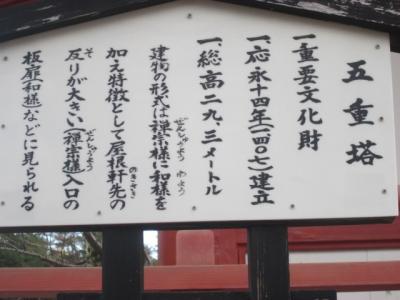 五重塔
一、重要文化財
一、応永十四年(一四〇七)建立
一、総高二九、三メートル
建物の形式は禅宗様に和様を
ぜんしゅうよう わよう
加え特徴として屋根軒先の
のきさき
反りが大きい(禅宗様)入口の
そ ぜんしゅうよう
板扉(和様)などに見られる